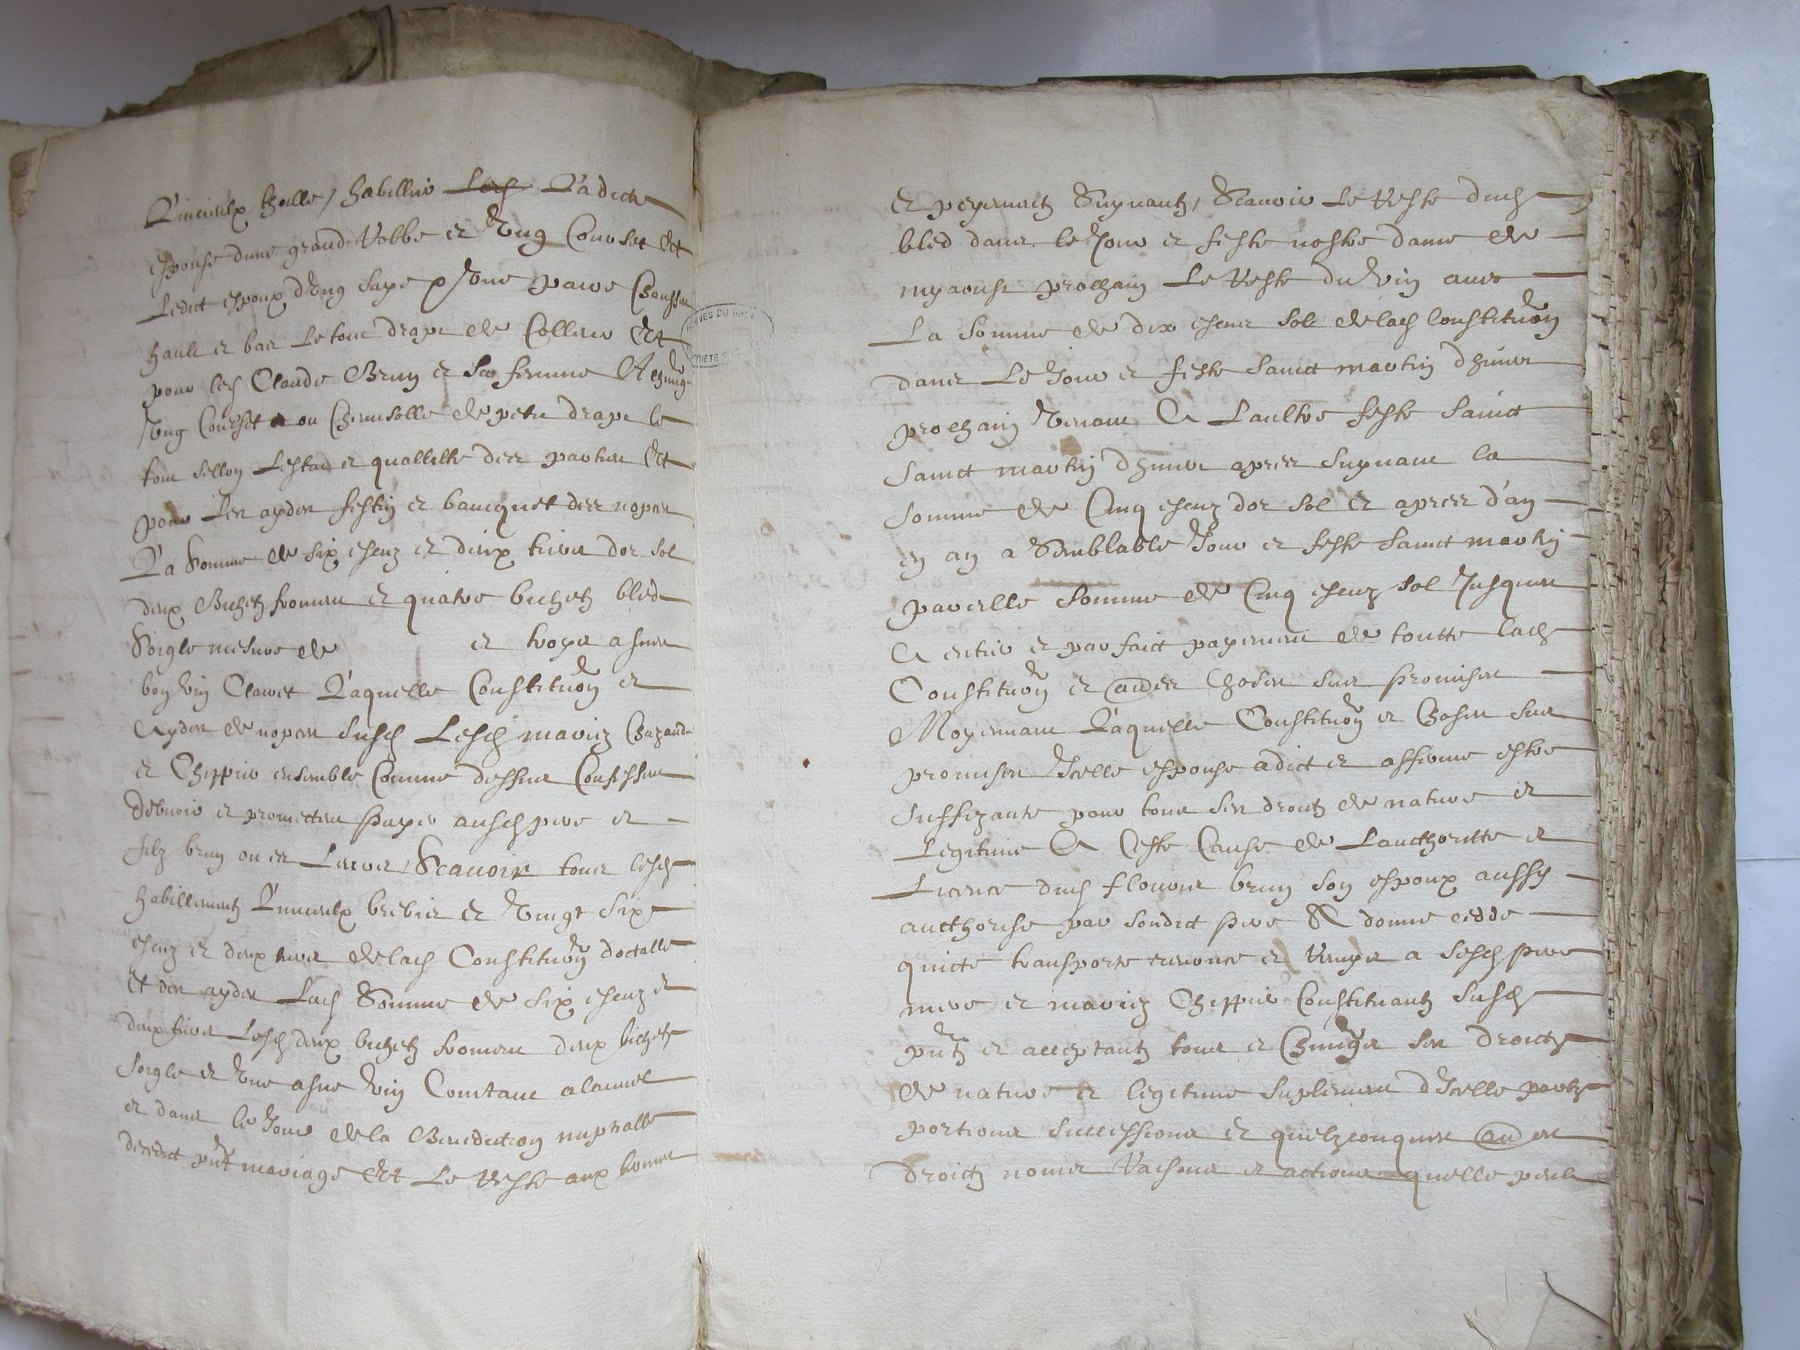 Lincieulx thoille / habillier Lad Ladicte
espouse dune grand Robbe et Vng Corset Et
Ledict espoux d'Vng saye & Vne paire Chausses
hault et bas Le tout drapt de Colleur Et
pour lesd Claude Brun et sa femme A Chung
Vng Corset ou Chemisolle de petit drapt le
tout sellon Lestat et quallitte des parties Et
pour Les ayder festin et bancquet des nopces
La Somme de six escuz et deux tiers dor sol
deux Bichetz froment et quatre bichetz bled
Soigle mesure de et troys asnees
bon Vin Clairet Laquelle Constitution et
Ayden de nopces susd Lesd mariez
et Chippier ensemble Comme dessus Confessent
debuoir et promettent payer ausd pere et
filz brun ou es Leurs, Scauoir tous lesd
habillementz Linceulx brebies et Vingt Six
escuz et deux tiers de lad Constitution doctalle
Et des ayden Lad Somme de six escuz et
deux tiers Lesd deux bichetz froment deux bichetz
soigle et Vne asnee Vin Contant alaimel
et dans le Jour de la Benediction nuptialle
decedict pnt mariage Et Le Reste aux termes
Et payementz Suyuantz, Scauoir Le Reste dud
bled dans le Jour et feste nostre dame de
myaoust prochain Le Reste du Vin auec
La Somme de dix escus sol de lad Constitution
dans Le Jour et feste Sainct martin d'hiuer
prochain Venant A Laultre feste Sainct
Sainct martin d'hiuer apres suyuant la
Somme de Cinq escuz dor sol Et apres d'an
en an a Semblable Jour et feste Sainct martin
pareille Somme de Cinq escuz sol Jusques
A entier et parfaict payement de toutte lad
Constitution et aultres Choses sus promises
Moyennant Laquelle Constitution et Choses sus
promises Icelle espouse a dict et afferme estre
suffizante pour tous ses droitz de nature et
Legitime A Ceste Cause de Laucthoritte et
Licence dud flouris brun son espoux aussy
aucthorise par sondict pere A donne cedde
quicte transporte renonce et Remys a sesd pere
mere et mariez Chippier Constituantz susd
pntz et acceptantz tous et Chungs ses droictz
de nature et legitime suplement d'Icelle partz
portions successions et quelzconques aultres
droictz noms Raisons et actions quelle peult